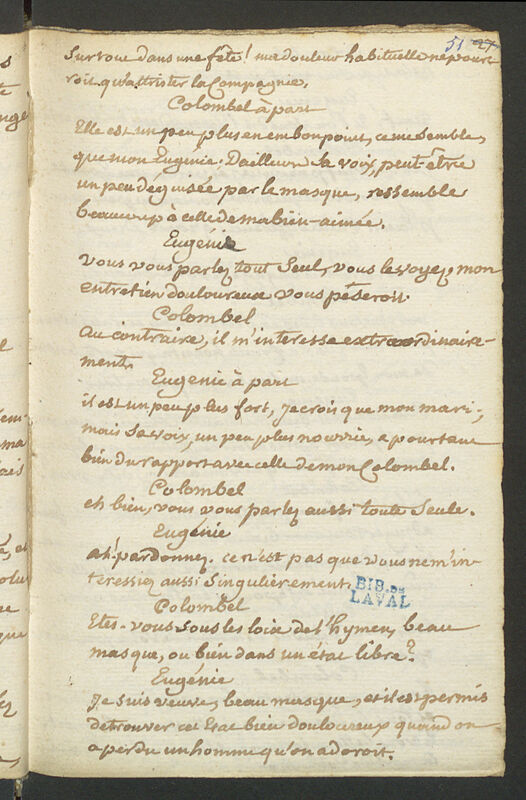 51 27
Surtout dans une fête! ma douleur habituelle ne pour=
roit qu'attrister la Compagnie.
Colombel à part
Elle est un peu plus en embonpoint, ce me semble,
que mon Eugénie. D'ailleurs sa voix, peut-être
un peu déguisée par le masque, ressemble
beaucoup à celle de ma bien-aimée.
Eugénie
vous vous parlez tout seul, vous le voyez, mon
entretien douloureux vous péseroit.
Colombel
au contraire, il m'interesse extraordinaire-
ment.
Eugenie à part
il est un peu plus fort, je crois que mon mari;
mais sa voix, un peu plus nourrie, a pourtant
bien du rapport avec celle de mon Colombel.
Colombel
eh bien, vous vous parlez aussi toute seule.
Eugénie
ah! pardonnez. ce n'est pas que vous ne m'in-
téressiez aussi singulièrement.
BIB. DE
LAVAL
Colombel
Etes-vous sous les loix de l'hymen, beau
masque, ou bien dans un état libre?
Eugénie
Je suis veuve, beau masque, et il est permis
de trouver cet état bien douloureux quand on
a perdu un homme qu'on adoroit.